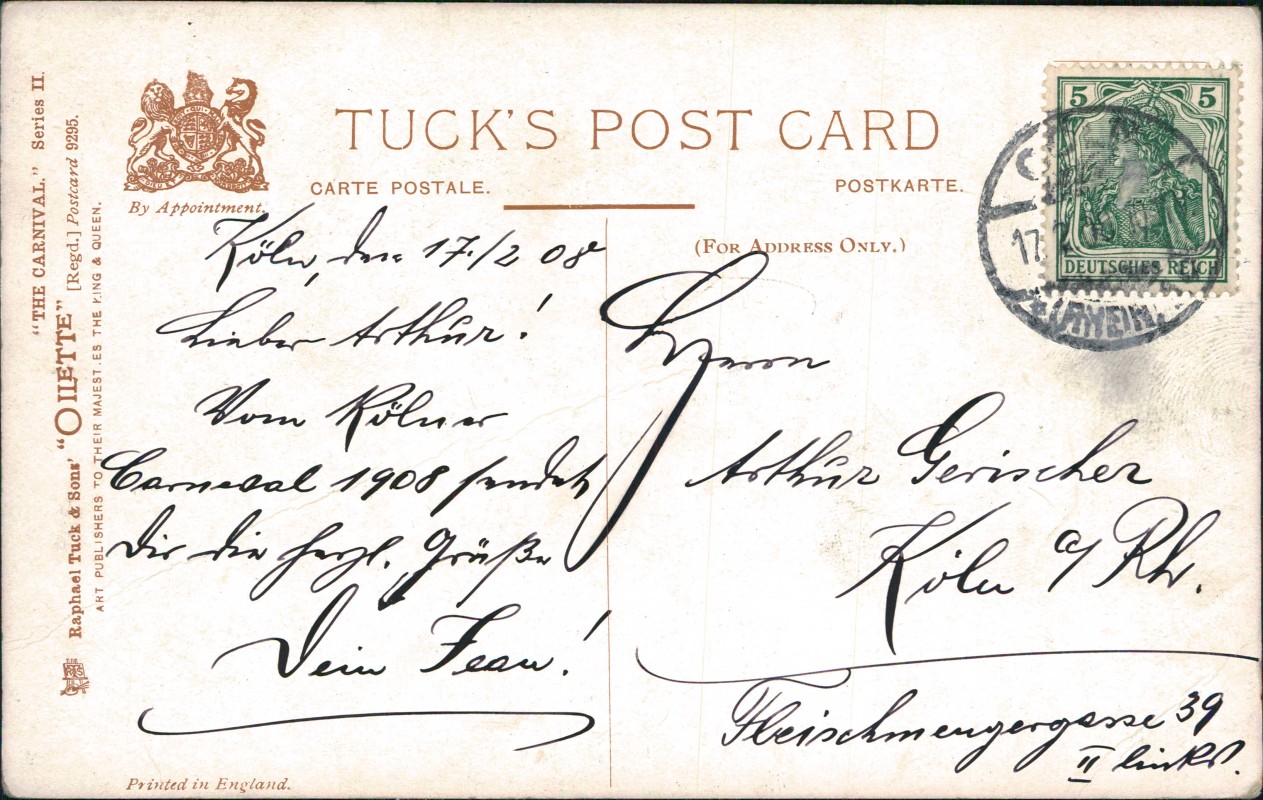 "THE CARNIVAL." Series II.
Raphael Tuck & Sons' "OILETTE" [Regd.] Postcard 9295.
ART PUBLISHERS TO THEIR MAJESTIES THE KING & QUEEN.
By Appointment.
TUCK'S POST CARD
CARTE POSTALE.
POSTKARTE.
(FOR ADDRESS ONLY.)
5 5
DEUTSCHES REICH
17.2
Köln, den 17./2 08
Lieber Arthur!
Vom Kölner
Carneval 1908 sendet
Dir die herzl. Grüße
Dein Jean!
Herrn
Arthur Gerischer
Köln a/Rh.
Fleischmengergasse 39
II links.
Printed in England.